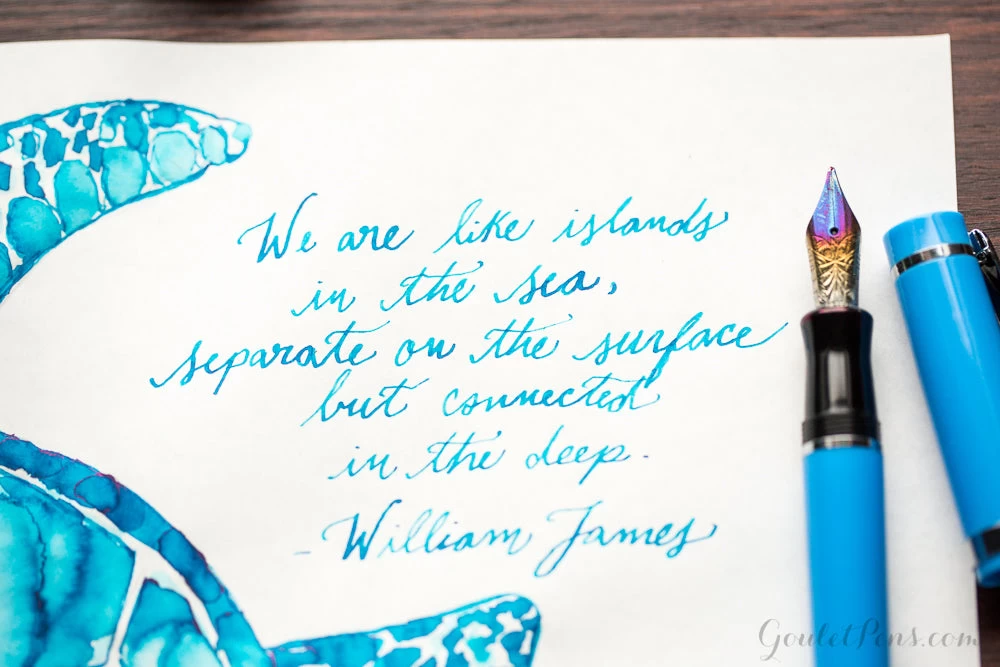 We are like islands
in the sea,
separate on the surface
but connected
in the deep.
- William James
GouletPens.com